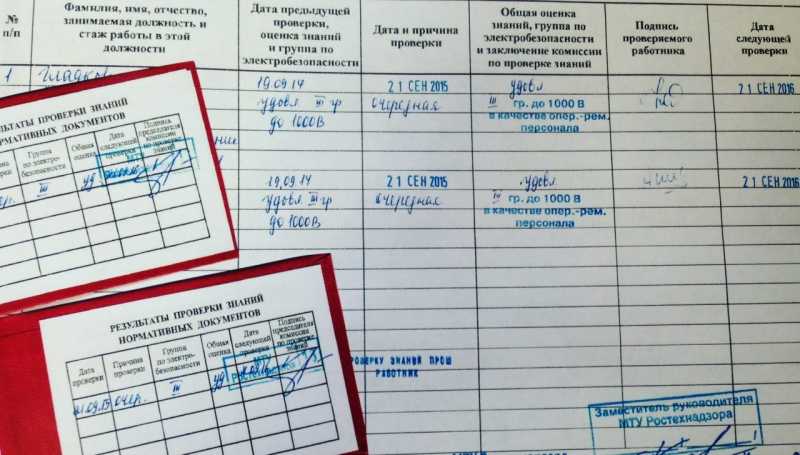 №
п/п
Фамилия, имя, отчество,
занимаемая должность и
стаж работы в этой
должности
Дата предыдущей
проверки,
оценка знаний
и группа по
электробезопасности
Дата и причина
проверки
Общая оценка
знаний, группа по
электробезопасности
и заключение комиссии
по проверке знаний
Подпись
проверяемого
работника
Дата
следующей
проверки
1
19.09.14
удовл III гр
до 1000В
21 СЕН 2015
очередная
удовл
III гр. до 1000 В
в качестве опер.-рем.
персонала
21 СЕН 2016
19.09.14
удовл III гр
до 1000В
21 СЕН 2015
очередная
удовл
IV гр. до 1000 В
в качестве опер.-рем.
персонала
21 СЕН 2016
ЗНАНИЙ
НОРМАТИВНЫХ ДОКУМЕНТОВ
Группа
по электро-
безопасности
Общая
оценка
Дата
следующей
проверки
Подпись
председателя
комиссии
по проверке
знаний
III
уд
РЕЗУЛЬТАТЫ ПРОВЕРКИ ЗНАНИЙ
НОРМАТИВНЫХ ДОКУМЕНТОВ
Дата
проверки
Причина
проверки
Группа
по электро-
безопасности
Общая
оценка
Дата
следующей
проверки
Подпись
председателя
комиссии
по проверке
знаний
очер.
III
уд
ЗНАНИЙ ПРОШ
РАБОТНИК
Заместитель руководителя
МТУ Ростехнадзора